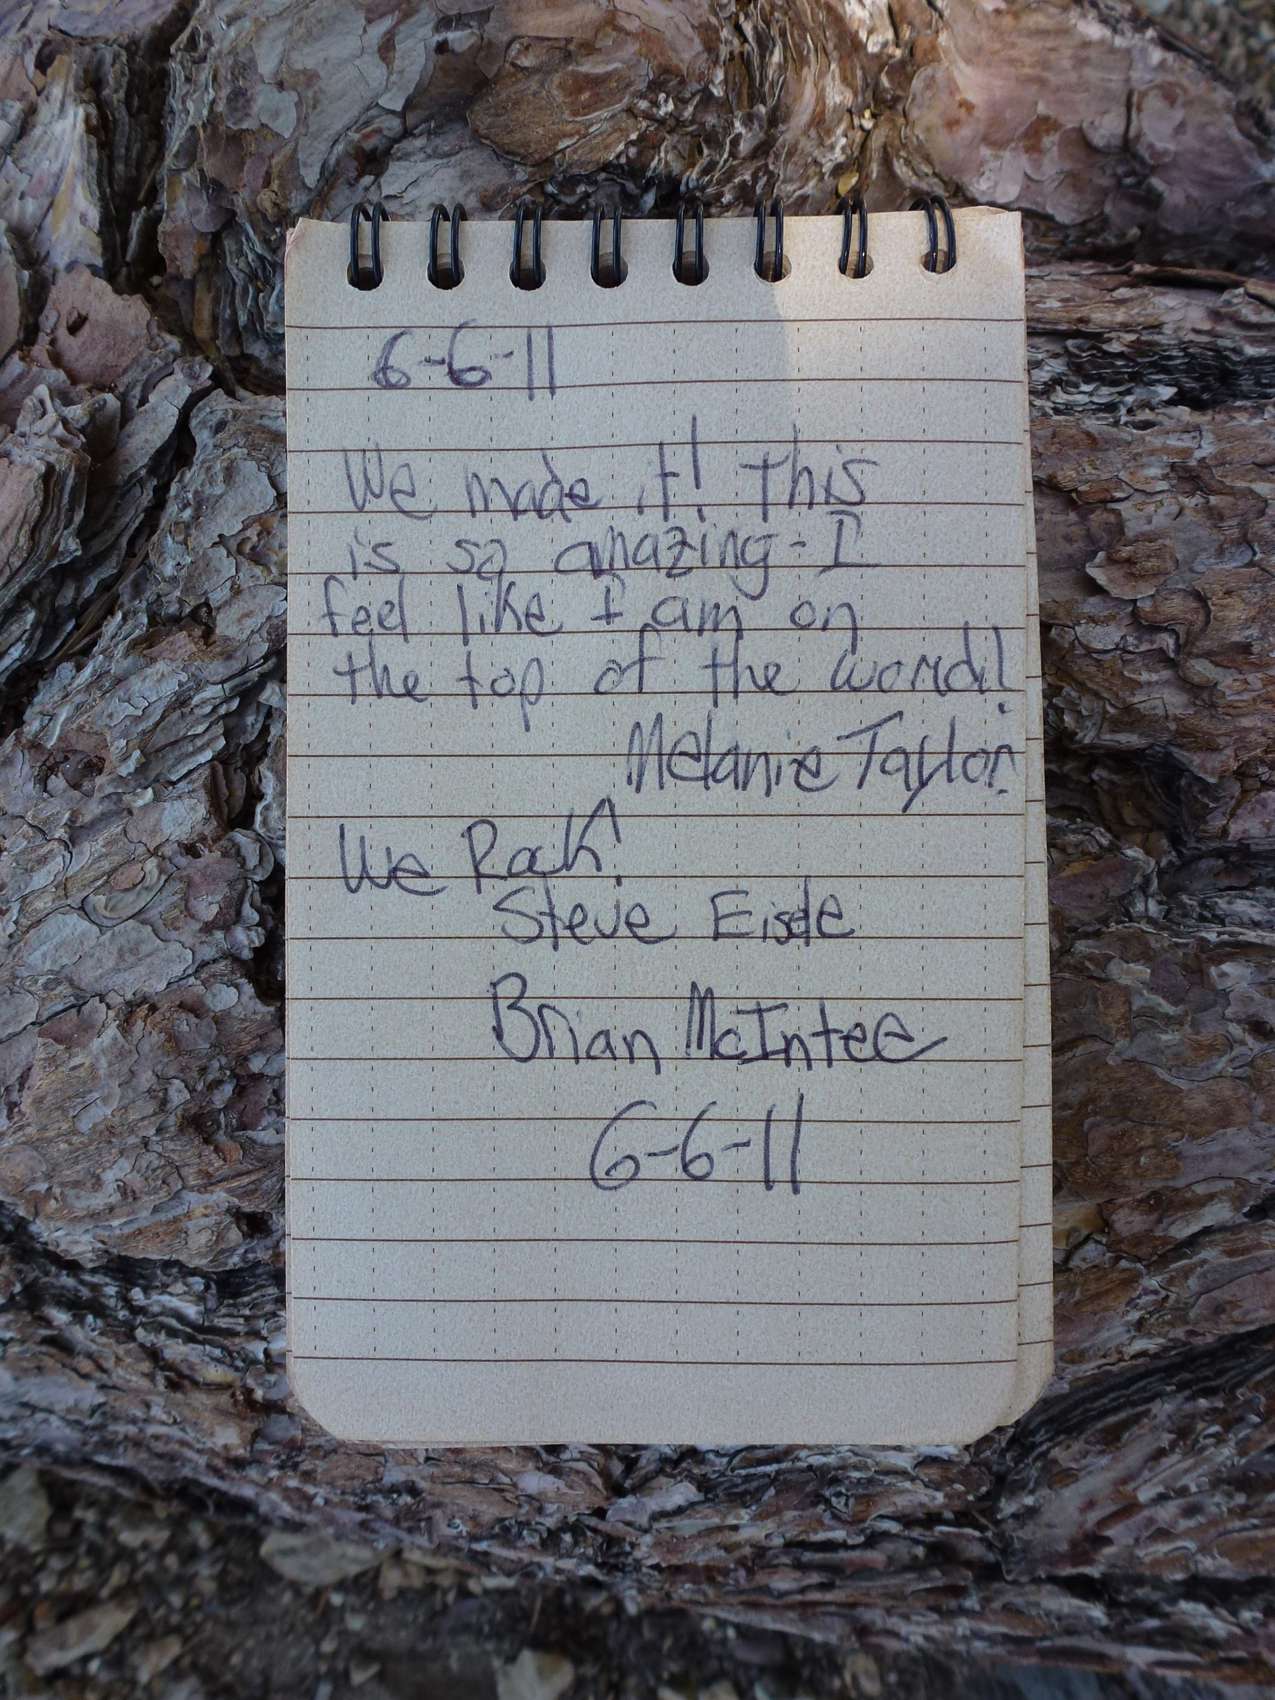 6-6-11
We made it! This
is so amazing - I
feel like I am on
the top of the world!
Melanie Taylor
We Rock!
Steve Eisele
Brian McIntee
6-6-11